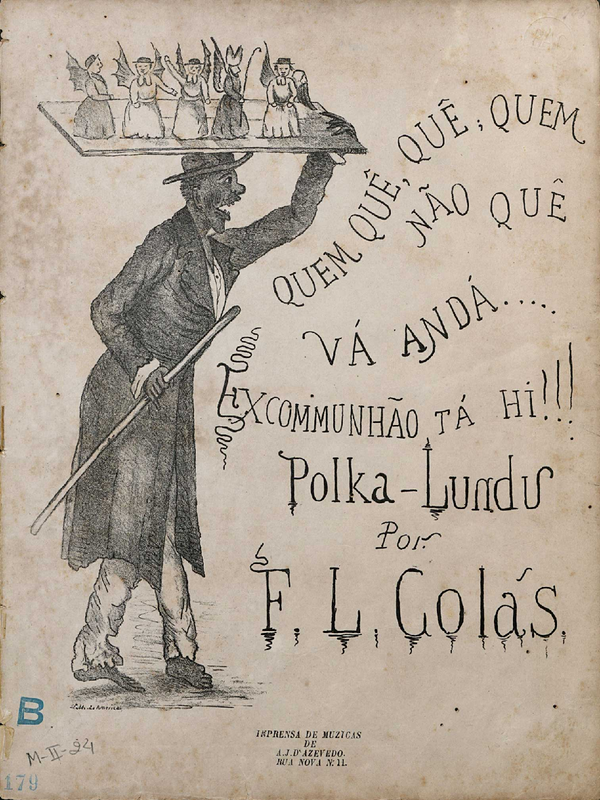 QUEM QUÊ, QUÊ; QUEM
NÃO QUÊ
VÁ ANDÁ.....
EXCOMMUNHÃO TÁ HI!!!
Polka-Lundú
Por
F. L. Colás.
IMPRENSA DE MUZICAS
DE
A.J.D'AZEVEDO.
RUA NOVA N. 11.
B
M-II-24
179